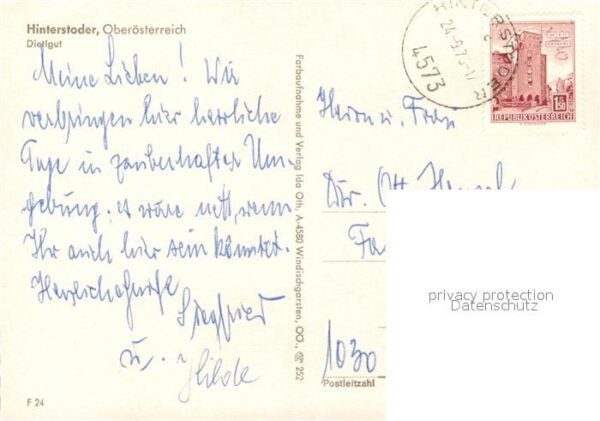 Hinterstoder, Oberösterreich
Dietlgut
Meine Lieben! Wir
verbringen hier herrliche
Tage in zauberhafter Um-
gebung. es wäre nett, wenn
Ihr auch hier sein könntet.
Herzlichst
Siegfried
u.
Hilde
F 24
Farbaufnahme und Verlag Ida Oth, A-4580 Windischgarsten, OÖ., ☎ 252
HINTERSTODER
4573
1.50
REPUBLIK ÖSTERREICH
Herrn u. Frau
Dir. Ott
1030
Postleitzahl
privacy protection
Datenschutz